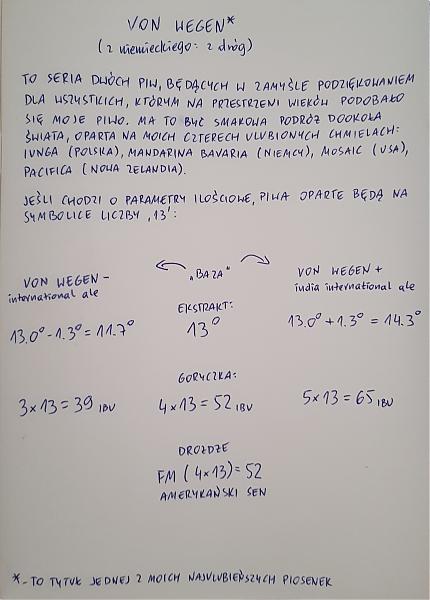 VON WEGEN*
(z niemieckiego: z dróg)
TO SERIA DWÓCH PIW, BĘDĄCYCH W ZAMYŚLE PODZIĘKOWANIEM
DLA WSZYSTKICH, KTÓRYM NA PRZESTRZENI WIEKÓW PODOBAŁO
SIĘ MOJE PIWO. MA TO BYĆ SMAKOWA PODRÓŻ DOOKOŁA
ŚWIATA, OPARTA NA MOICH CZTERECH ULUBIONYCH CHMIELACH:
IUNGA (POLSKA), MANDARINA BAVARIA (NIEMCY), MOSAIC (USA),
PACIFICA (NOWA ZELANDIA).
JEŚLI CHODZI O PARAMETRY ILOŚCIOWE, PIWA OPARTE BĘDĄ NA
SYMBOLICE LICZBY „13":
VON WEGEN -
international ale
„BAZA"
VON WEGEN +
india international ale
EKSTRAKT:
13.0° - 1.3° = 11.7°
13°
13.0° + 1.3° = 14.3°
GORYCZKA:
3 x 13 = 39 IBU
4 x 13 = 52 IBU
5 x 13 = 65 IBU
DROŻDŻE
FM (4 x 13) = 52
AMERYKAŃSKI SEN
* - TO TYTUŁ JEDNEJ Z MOICH NAJULUBIEŃSZYCH PIOSENEK